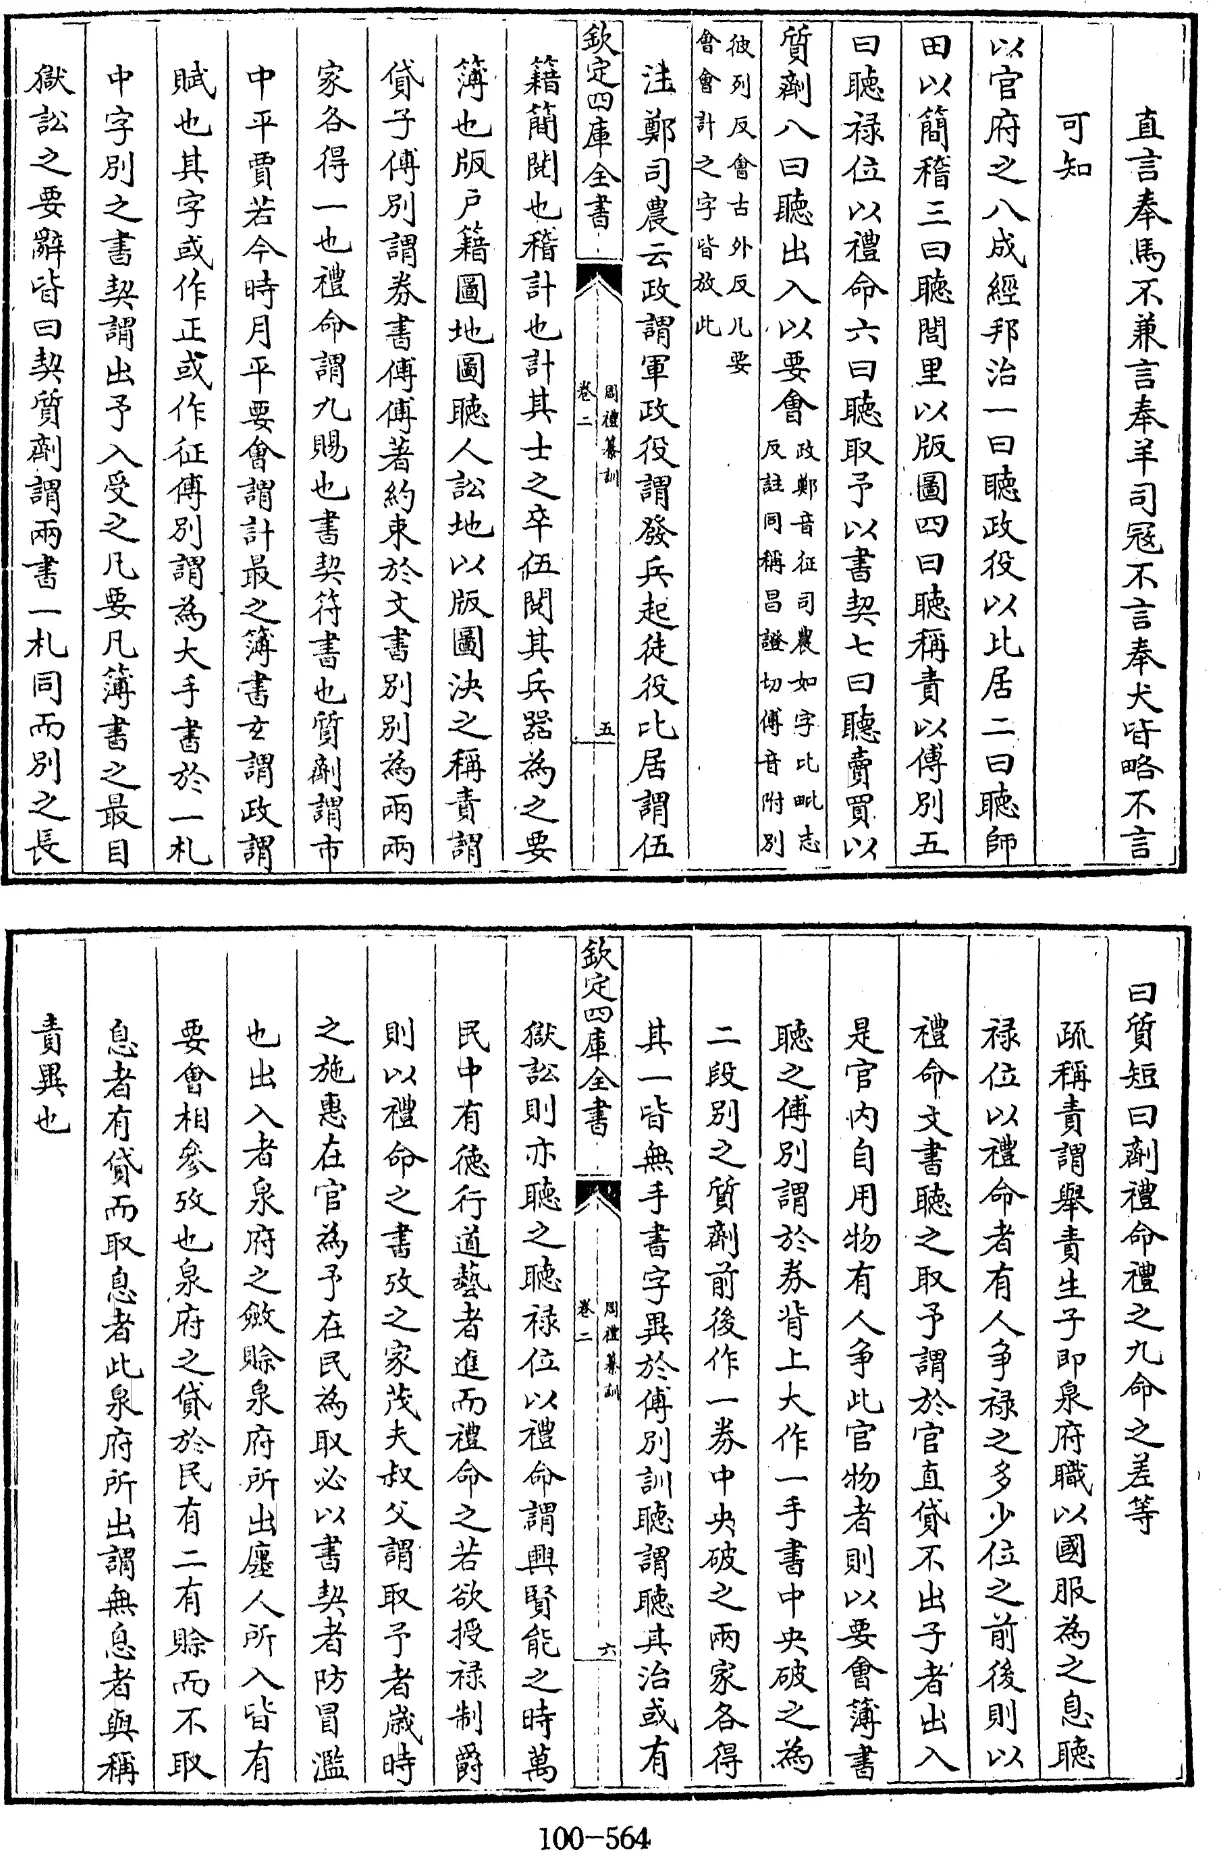 直言奉馬不兼言奉羊司寇不言奉犬皆略不言
可知
以官府之八成經邦治一曰聽政役以比居二曰聽師
田以簡稽三曰聽閭里以版圖四曰聽稱責以傅別五
曰聽禄位以禮命六曰聽取予以書契七曰聽賣買以
質劑八曰聽出入以要會政鄭音征司農如字比毗志
反註同稱昌證切傅音附别
彼列反會古外反凡要
會會計之字皆放此
注鄭司農云政謂軍政役謂發兵起徒役比居謂伍
欽定四庫全書
周禮纂訓
卷二
五
籍簡閱也稽計也計其士之卒伍閱其兵器為之要
簿也版户籍圖地圖聽人訟地以版圖決之稱責謂
貸子傅別謂券書傅傅著約束於文書別別為兩兩
家各得一也禮命謂九賜也書契符書也質劑謂市
中平賈若今時月平要會謂計最之簿書玄謂政謂
賦也其字或作正或作征傅別謂為大手書於一札
中字別之書契謂出予入受之凡要凡簿書之最目
獄訟之要辭皆曰契質劑謂兩書一札同而別之長
曰質短曰劑禮命禮之九命之差等
疏稱責謂舉責生子即泉府職以國服為之息聽
禄位以禮命者有人争禄之多少位之前後則以
禮命文書聽之取予謂於官直貸不出子者出入
是官内自用物有人争此官物者則以要會簿書
聽之傅別謂於券背上大作一手書中央破之為
二段別之質劑前後作一券中央破之兩家各得
其一皆無手書字異於傅別訓聽謂聽其治或有
欽定四庫全書
周禮纂訓
卷二
六
獄訟則亦聽之聽禄位以禮命謂興賢能之時萬
民中有德行道藝者進而禮命之若欲授禄制爵
則以禮命之書攷之家茂夫叔父謂取予者歲時
之施惠在官為予在民為取必以書契者防冒濫
也出入者泉府之斂賒泉府所出廛人所入皆有
要會相參攷也泉府之貸於民有二有賒而不取
息者有貸而取息者此泉府所出謂無息者與稱
責異也
100-564